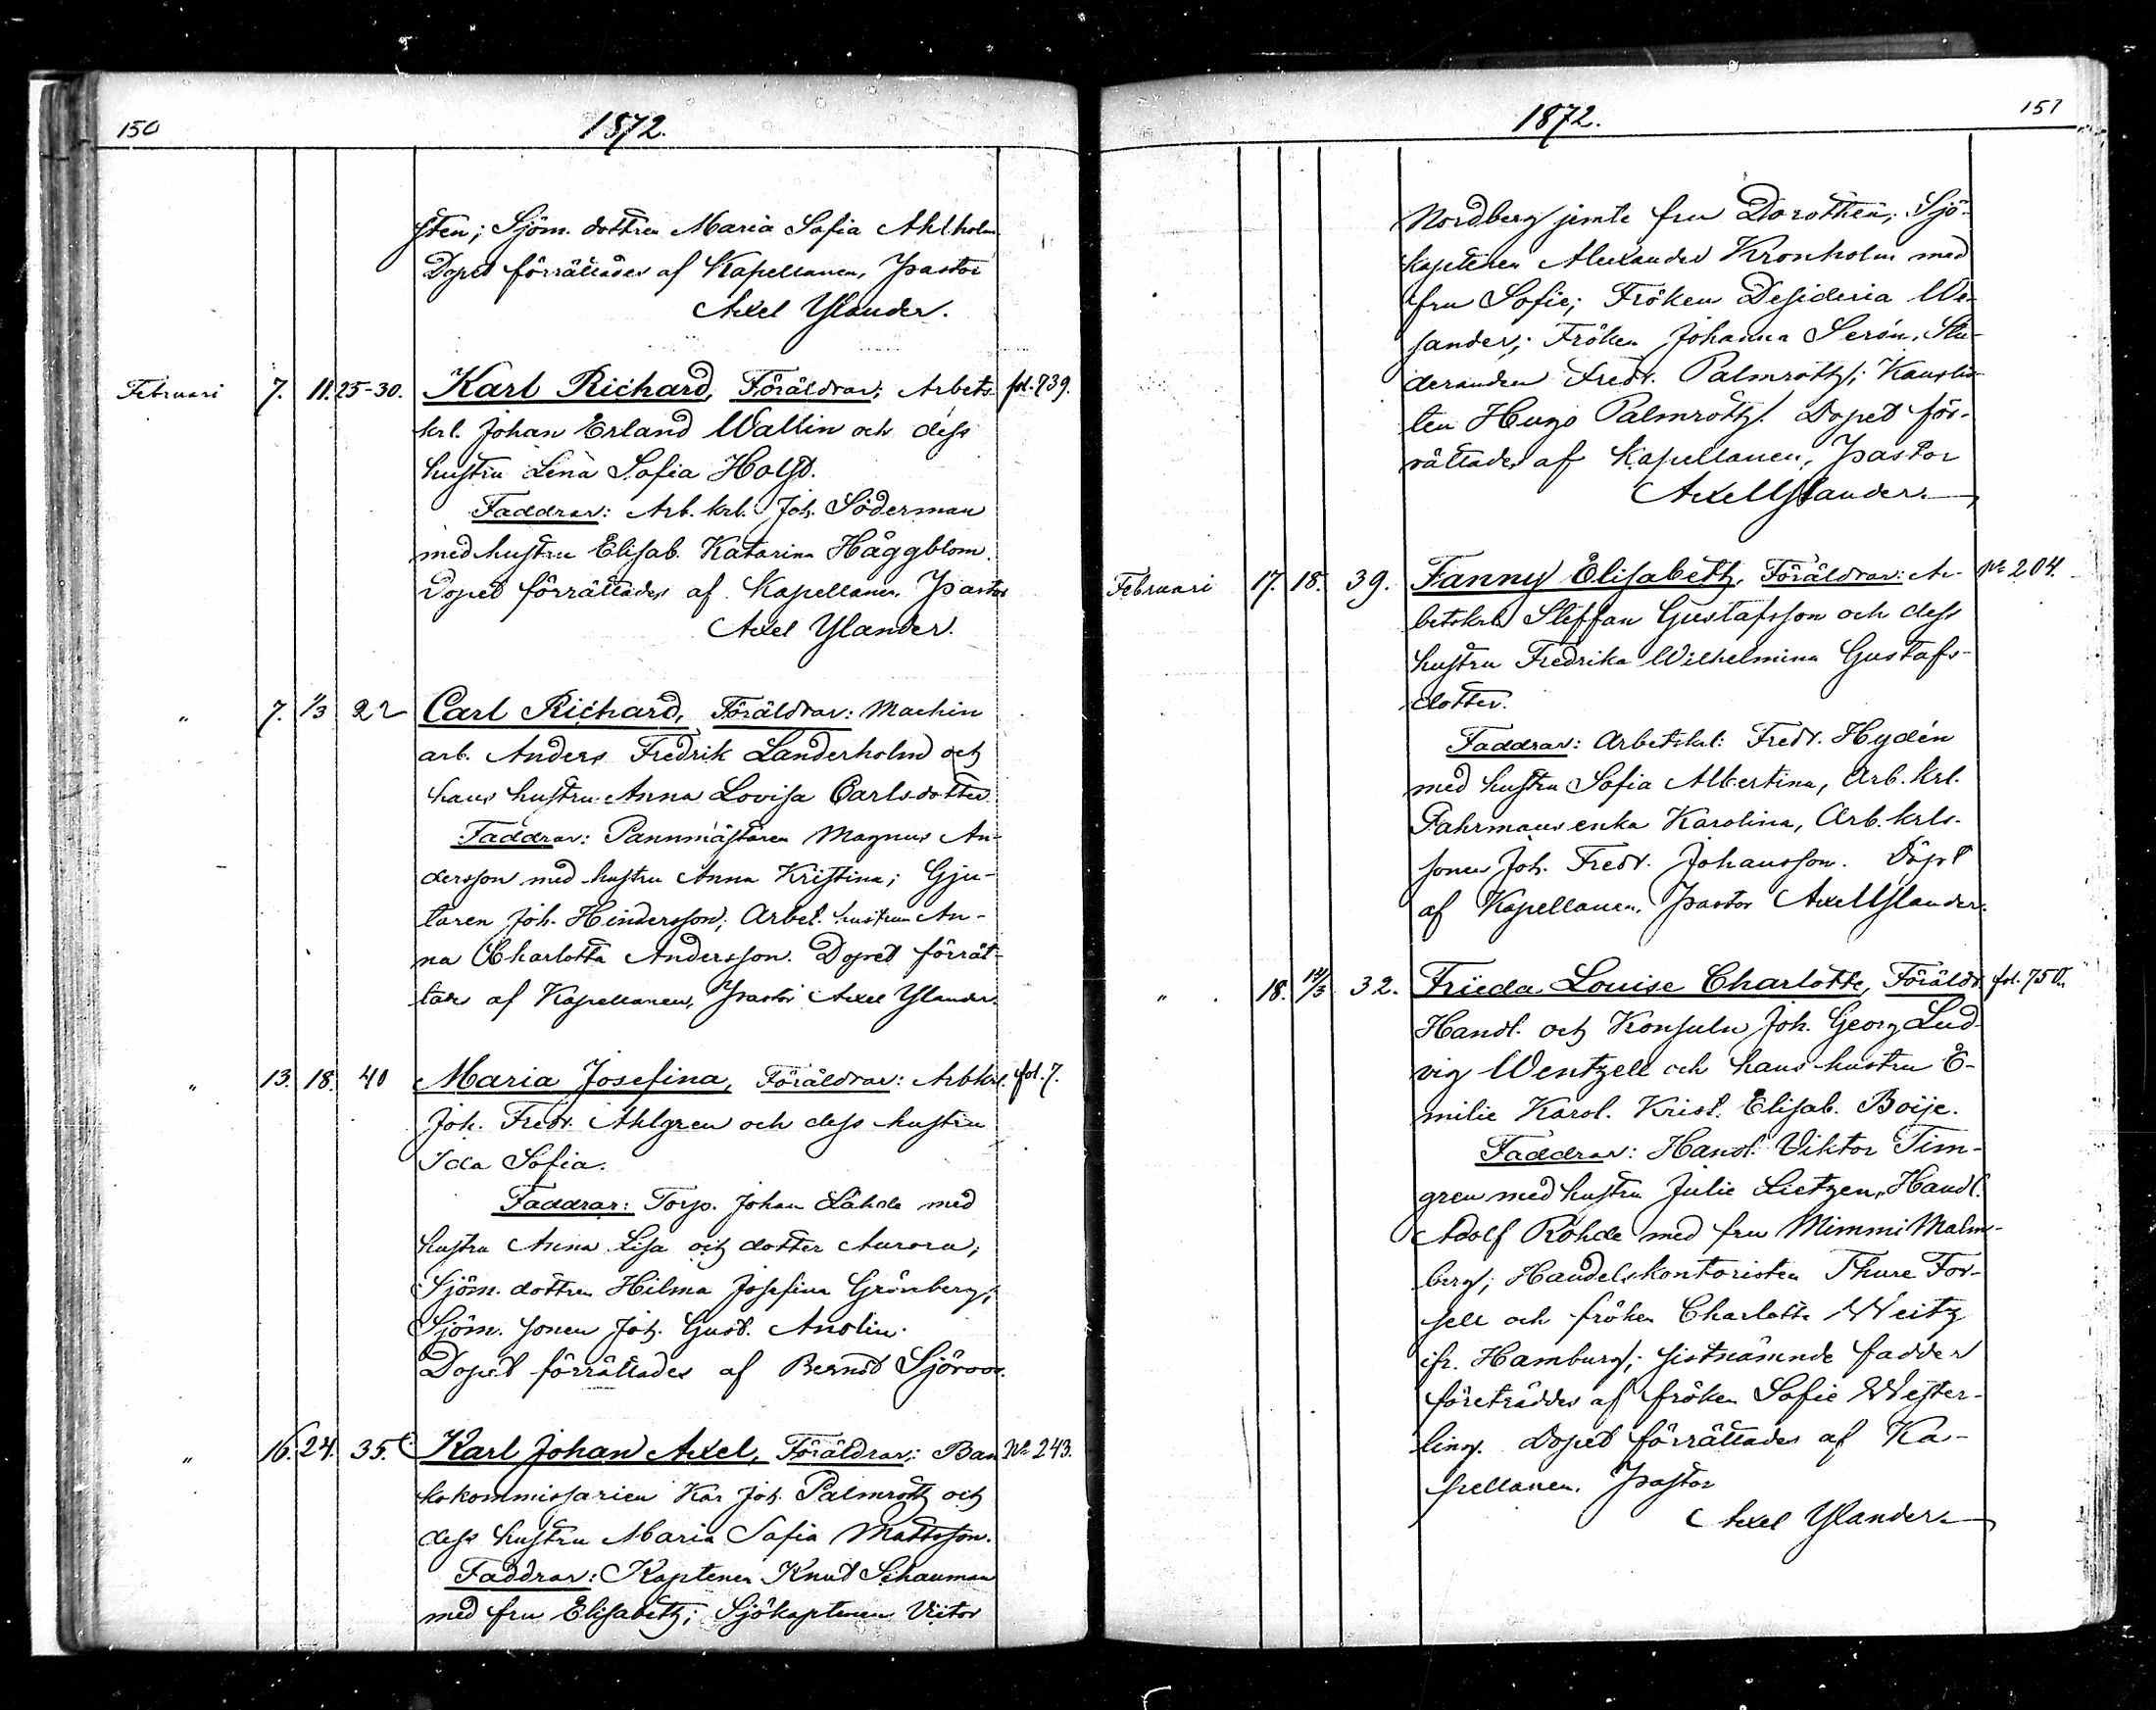 150
1872.
sten; Sjöm. dottren Maria Sofia Ahlholm
Dopet förrättades af Kapellanen, Pastor
Axel Ylander.
Februari 7. 11. 25-30. Karl Richard, Föräldrar; Arbets- fol. 739.
krl. Johan Erland Wallin och dess
hustru Lena Sofia Holst.
Faddrar: Arb. krl. Joh. Söderman
med hustru Elisab. Katarina Häggblom.
Dopet förrättades af Kapellanen Pastor
Axel Ylander.
" 7. 1/3 22 Carl Richard, Föräldrar: Machin
arb. Anders Fredrik Landerholm och
hans hustru Anna Lovisa Carlsdotter
Faddrar: Pannmästaren Magnus An-
dersson med hustru Anna Kristina; Gju-
taren Joh. Hindersson; Arbet. hustrun An-
na Charlotta Andersson. Dopet förrät-
tades af Kapellanen, Pastor Axel Ylander.
" 13. 18. 40 Maria Josefina, Föräldrar: Arbkrl. fol. 7.
Joh. Fredr. Ahlgren och dess hustru
Ida Sofia.
Faddrar: Torp. Johan Lähde med
hustru Anna Lisa och dotter Aurora;
Sjöm. dottren Hilma Josefina Grönberg;
Sjöm. sonen Joh. Gust. Anolin.
Dopet förrättades af Berndt Sjöroos.
" 16. 24. 35. Karl Johan Axel, Föräldrar; Ban No 243.
kokommissarien Kar Joh. Palmroth och
dess hustru Maria Sofia Mattsson.
Faddrar: Kaptenen Knut Schauman
med fru Elisabeth; Sjökaptenen Victor
1872.
151
Nordberg jemte fru Dorothea; Sjö-
kaptenen Alexander Kronholm med
fru Sofie; Fröken Desideria We-
sander; Fröken Johanna Serén, Stu-
deranden Fredr. Palmroth; Kanslis-
ten Hugo Palmroth. Dopet för-
rättades af Kapellanen, Pastor
Axel Ylander.
Februari 17. 18. 39. Fanny Elisabeth, Föräldrar: Ar- No 204.
betskrl. Steffan Gustafsson och dess
hustru Fredrika Wilhelmina Gustafs-
dotter.
Faddrar: Arbetskrl: Fredr. Hydén
med hustru Sofia Albertina, Arb. krl.
Fahrmans enka Karolina, Arb. krls.
sonen Joh. Fredr. Johansson. Döpt
af Kapellanen, Pastor Axel Ylander.
" 18. 14/3 32. Frieda Louise Charlotte, Föräldr. fol. 750.
Handl. och Konsuln Joh. Georg Lud-
vig Wentzell och hans hustru E-
milie Karol. Krist. Elisab. Boije.
Faddrar: Handl. Viktor Tim-
gren med hustru Julie Lietzen, Handl.
Adolf Rohde med fru Mimmi Malm-
berg; Handelskontoristen Thure For-
sell och fröken Charlotte Weitz
ifr. Hamburg; sistnämnde fadder
företräddes af fröken Sofie Wester-
ling. Dopet förrättades af Ka-
pellanen, Pastor
Axel Ylander.